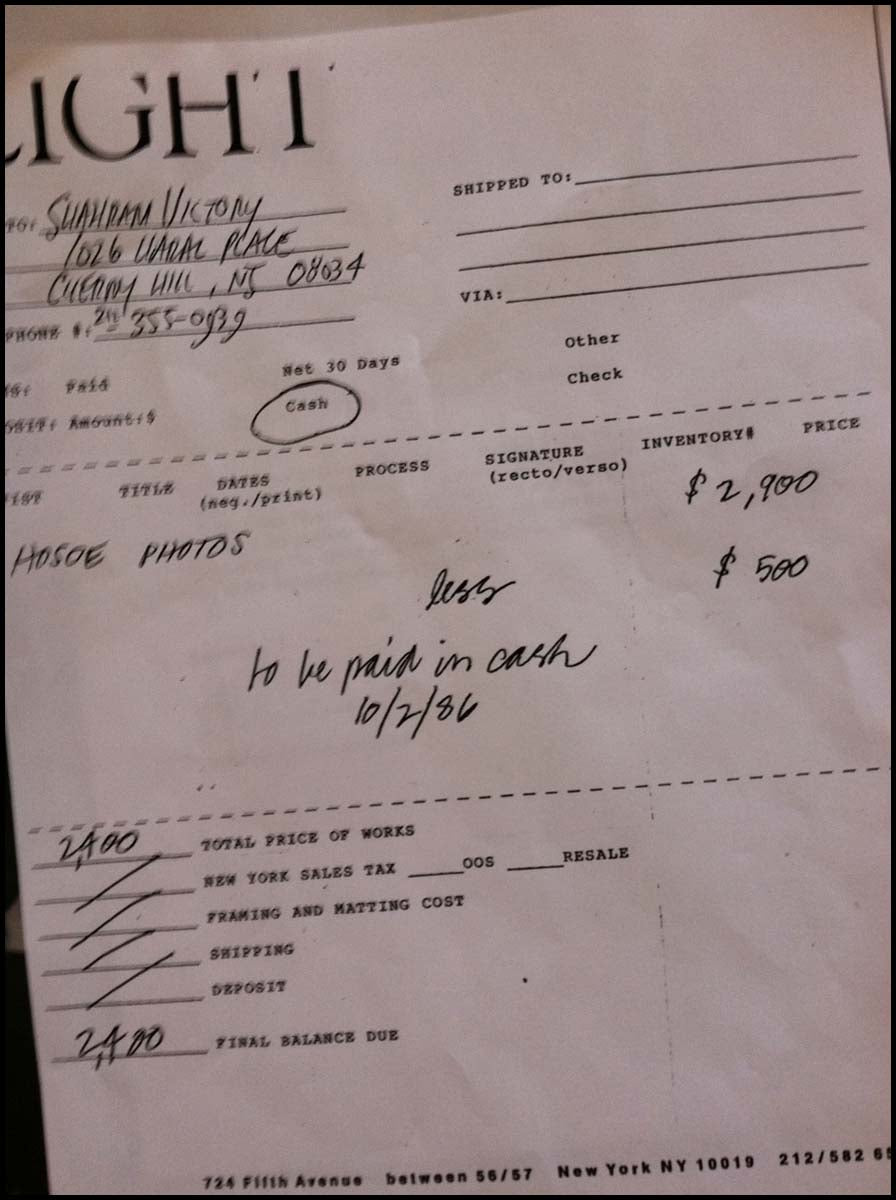 LIGHT
TO: SHAHRAM VICTORY
1026 URAL PLACE
CHERRY HILL, NJ 08034
PHONE #: 355-0939
SHIPPED TO:
VIA:
Paid Net 30 Days Other
Amount:$ Cash Check
TITLE DATES PROCESS SIGNATURE INVENTORY# PRICE
(neg./print) (recto/verso)
$ 2,900
HOSOE PHOTOS
less $ 500
to be paid in cash
10/2/86
2,400 TOTAL PRICE OF WORKS
NEW YORK SALES TAX _____OOS _____RESALE
FRAMING AND MATTING COST
SHIPPING
DEPOSIT
2,400 FINAL BALANCE DUE
724 Fifth Avenue between 56/57 New York NY 10019 212/582 65